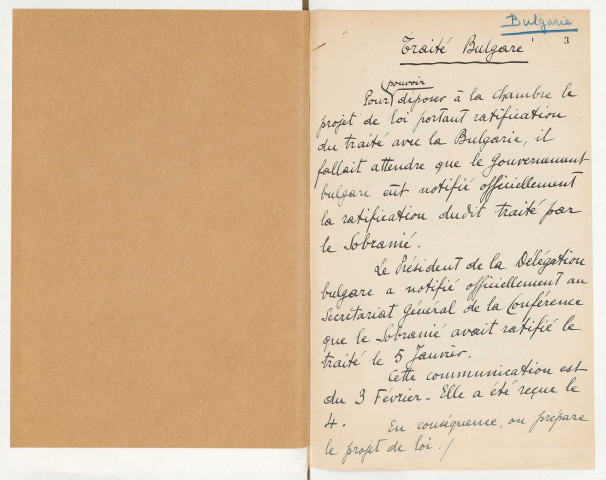 Bulgarie
3
Traité Bulgare
pouvoir
Pour déposer à la chambre le
projet de loi portant ratification
du traité avec la Bulgarie, il
fallait attendre que le Gouvernement
bulgare eût notifié officiellement
la ratification dudit traité par
le Sobranié.
Le Président de la Délégation
bulgare a notifié officiellement au
Secrétariat Général de la Conférence
que le Sobranié avait ratifié le
traité le 5 Janvier.
Cette communication est
du 3 Février - Elle a été reçue le
4.
En conséquence, on prépare
le projet de loi ./